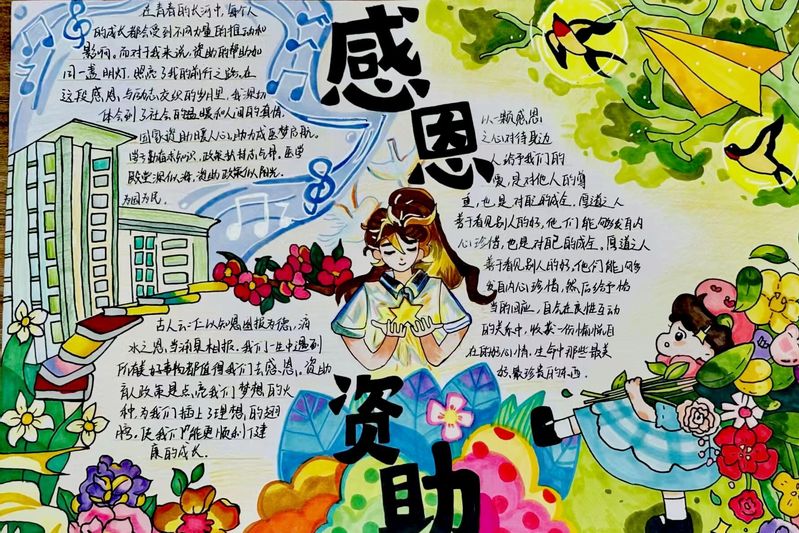 感恩
资助
在青春的长河中,每个人
的成长都会受到不同力量的推动和
影响,而对于我来说,资助的帮助如
同一盏明灯,照亮了我的前行之路,在
这段感恩,与励志交织的岁月里,我深切
体会到了社会的温暖和人间的真情。
国家资助暖人心,助力成医梦启航。
学子勤奋求知识,政策扶持志气昂。医学
殿堂深似海,资助政策似阳光。
为国为民。
古人云:仁以知恩图报为德,滴
水之恩,当涌泉相报。我们一生中遇到
所有好事物都值得我们去感恩,资助
育人政策是点亮我们梦想的火
种,为我们插上了理想的翅
膀,使我们能更顺利健
康的成长。
以一颗感恩
之心对待身边
人给予我们的
爱,是对他人的尊
重,也是对自己的成全,厚道之人
善于看见别人的好,他们能够发自内
心珍惜,也是对自己的成全,厚道之人
善于看见别人的好,他们能够
发自内心珍惜,然后给予恰
当的回应,且会在良性互动
的关系中,收获一份愉悦自
在的好心情,生命中那些最美
好,最珍贵的东西.